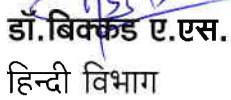 डॉ.बिक्कड ए.एस.
हिन्दी विभाग